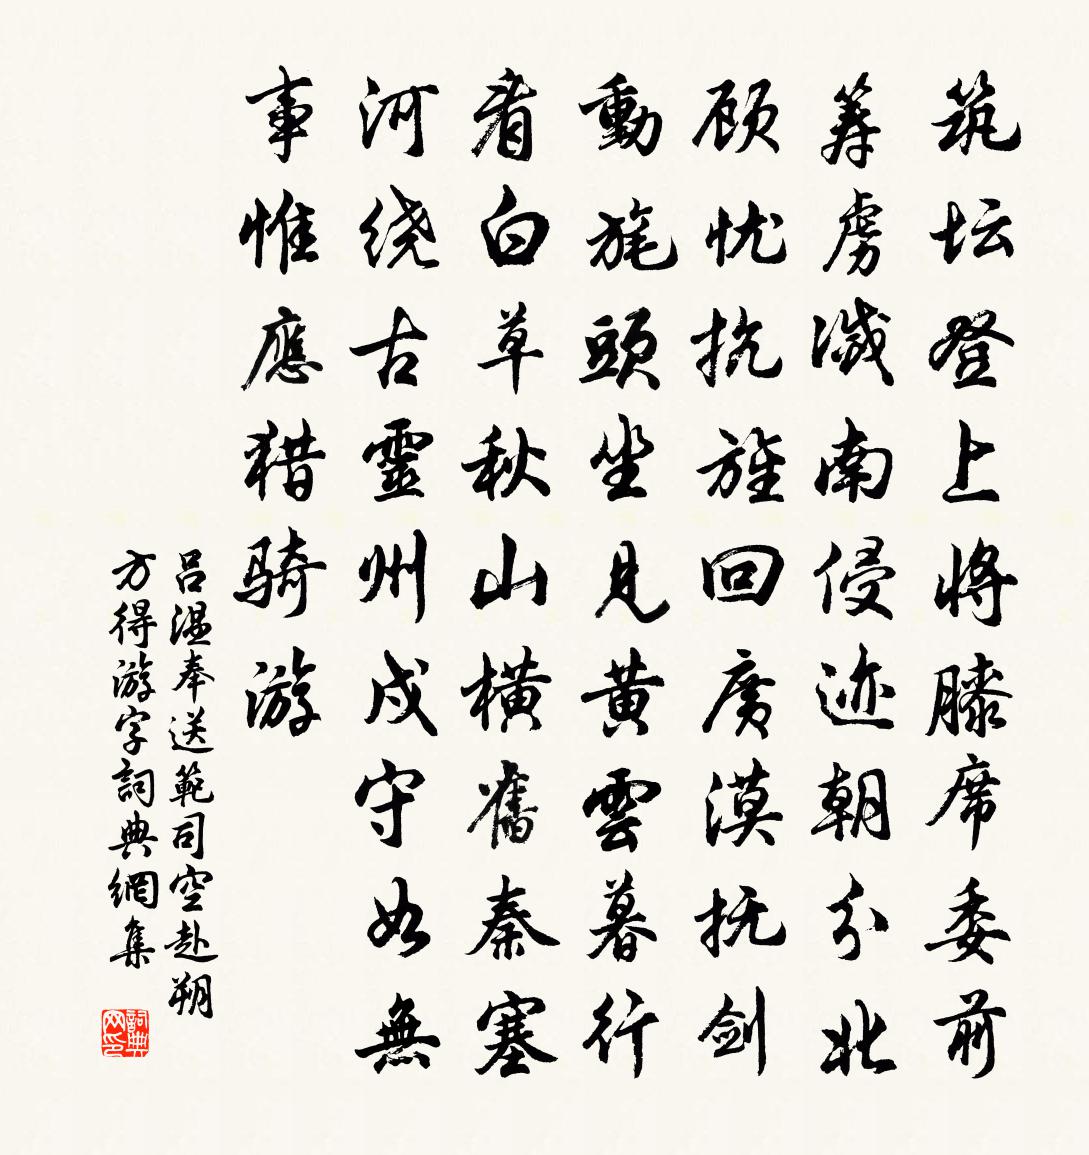 筑坛登上将膝席委前
筹虏滅南侵迹朝分北
顾忧抗旌回广漠抚剑
動旄頭坐見黄雲暮行
看白草秋山横舊秦塞
河绕古靈州戍守如無
事惟應猎骑游
吕温奉送範司空赴朔
方得游字詞典網集
詞典网印